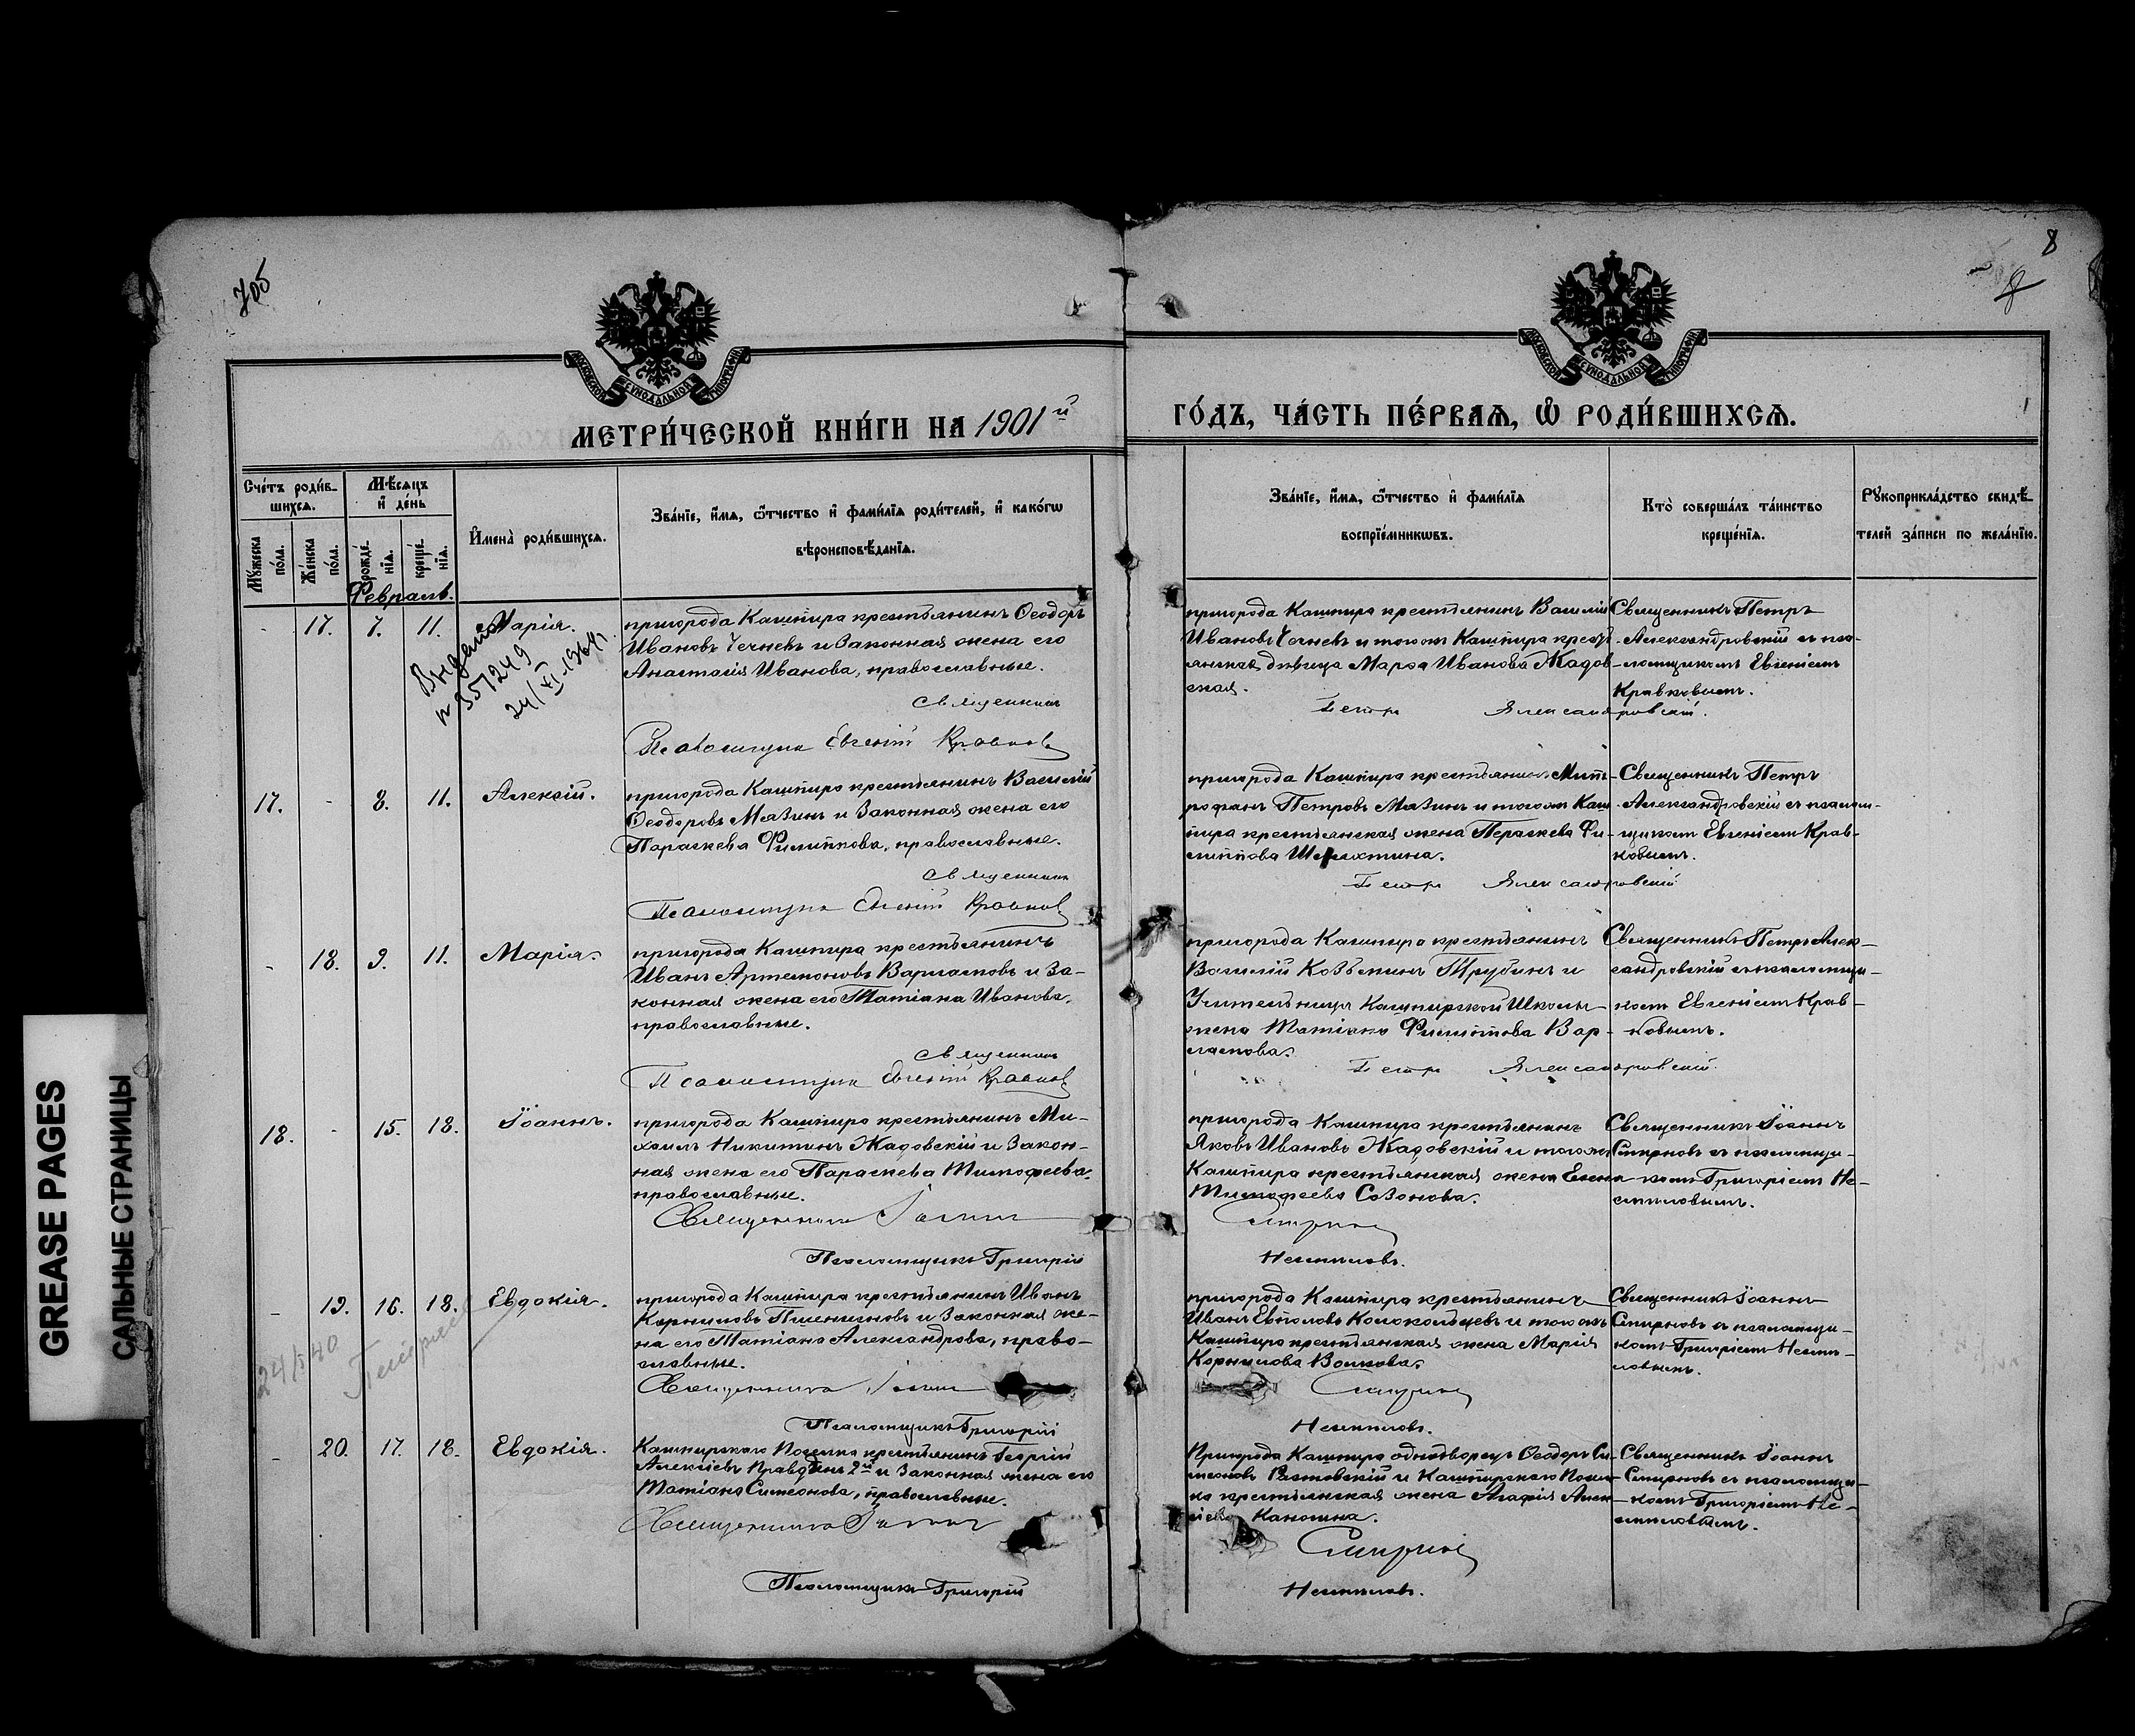 705
8
8
МОСКОВСКОЙ СУНОДАЛЬНОЙ ТИПОГРАФІИ
МОСКОВСКОЙ СУНОДАЛЬНОЙ ТИПОГРАФІИ
МЕТРИ́ЧЕСКОЙ КНИ́ГИ НА 1901й
ГО́ДЪ, ЧА́СТЬ ПЕ́РВАѦ, Ѡ҆ РОДИ́ВШИХСѦ.
Сче́тъ роди́в-
шихсѧ.
Мѣ́сѧцъ
и҆ де́нь
Мꙋ́жеска
по́ла.
Же́нска
по́ла.
рожде́-
нїѧ.
креще́-
нїѧ.
И҆мена̀ роди́вшихсѧ.
Зва́нїе, и҆́мѧ, ѻ҆́тчество и҆ фами́лїѧ роди́телей, и҆ како́гѡ
вѣроисповѣ́данїѧ.
Зва́нїе, и҆́мѧ, ѻ҆́тчество и҆ фами́лїѧ
воспрїе́мникѡвъ.
Кто̀ соверша́лъ та́инство
креще́нїѧ.
Рꙋкоприкла́дство свидѣ́-
телей за́писи по жела́нїю.
Февраль.
- 17. 7. 11. Марія.
Выдано
№ 351249
24/XI.1964г.
пригорода Кашпира крестьянинъ Ѳеодоръ
Ивановъ Чечневъ и законная жена его
Анастасія Иванова, православные.
Священникъ
Псаломщикъ Евгеній Кравковъ
пригорода Кашпира крестьянинъ Василій
Ивановъ Чечневъ и того же Кашпира кресть-
янская дѣвица Марѳа Иванова Жадов-
ская.
Петръ Александровскій.
Священникъ Петръ
Александровскій съ пса-
ломщикомъ Евгеніемъ
Кравковымъ.
17. - 8. 11. Алексій.
пригорода Кашпира крестьянинъ Василій
Ѳеодоровъ Мязинъ и законная жена его
Параскева Филиппова, православные.
Священникъ
Псаломщикъ Евгеній Кравковъ
пригорода Кашпира крестьянинъ Мит-
рофанъ Петровъ Мязинъ и того же Каш-
пира крестьянская жена Параскева Фи-
липпова
Петръ Александровскій
Священникъ Петръ
Александровскій съ псалом-
щикомъ Евгеніемъ Крав-
ковымъ.
- 18. 9. 11. Марія.
пригорода Кашпира крестьянинъ
Иванъ Артемоновъ Варламовъ и за-
конная жена его Татіана Иванова,
православные.
Священникъ
Псаломщикъ Евгеній Кравковъ
пригорода Кашпира крестьянинъ
Василій Козьминъ Трубинъ и
Учительница Кашпирской Школы
жена Татіана Филиппова Вар-
ламова.
Петръ Александровскій.
Священникъ Петръ Алек-
сандровскій съ псаломщи-
комъ Евгеніемъ Крав-
ковымъ.
18. - 15. 18. Іоаннъ.
пригорода Кашпира крестьянинъ Ми-
хаилъ Никитинъ Жадовскій и закон-
ная жена его Параскева Тимофеева,
православные.
Священникъ Іоаннъ
Псаломщикъ Григорій
пригорода Кашпира крестьянинъ
Яковъ Ивановъ Жадовскій и того же
Кашпира крестьянская жена Елена
Тимофеева Созонова.
Смирновъ
Несмѣловъ.
Священникъ Іоаннъ
Смирновъ съ псаломщи-
комъ Григоріемъ Не-
смѣловымъ.
- 19. 16. 18. Евдокія.
24/540
пригорода Кашпира крестьянинъ Иванъ
Корниловъ Пшеничновъ и законная же-
на его Татіана Александрова, право-
славные.
Священникъ Іоаннъ
Псаломщикъ Григорій
пригорода Кашпира крестьянинъ
Иванъ Евпловъ Колокольцевъ и того же
Кашпира крестьянская жена Марія
Корнилова Волкова.
Смирновъ
Несмѣловъ.
Священникъ Іоаннъ
Смирновъ съ псаломщи-
комъ Григоріемъ Несмѣ-
ловымъ.
- 20. 17. 18. Евдокія.
Кашпирскаго Поселка крестьянинъ Георгій
Алексіевъ Правдинъ 2й и законная жена его
Татіана Симеонова, православные.
Священникъ Іоаннъ
Псаломщикъ Григорій
Пригорода Кашпира однодворецъ Ѳеодоръ Си-
меоновъ Ростовскій и Кашпирскаго Посел-
ка крестьянская жена Агафія Алек-
сіева Канюшна.
Смирновъ
Несмѣловъ.
Священникъ Іоаннъ
Смирновъ съ псаломщи-
комъ Григоріемъ Не-
смѣловымъ.
GREASE PAGES
САЛЬНЫЕ СТРАНИЦЫ